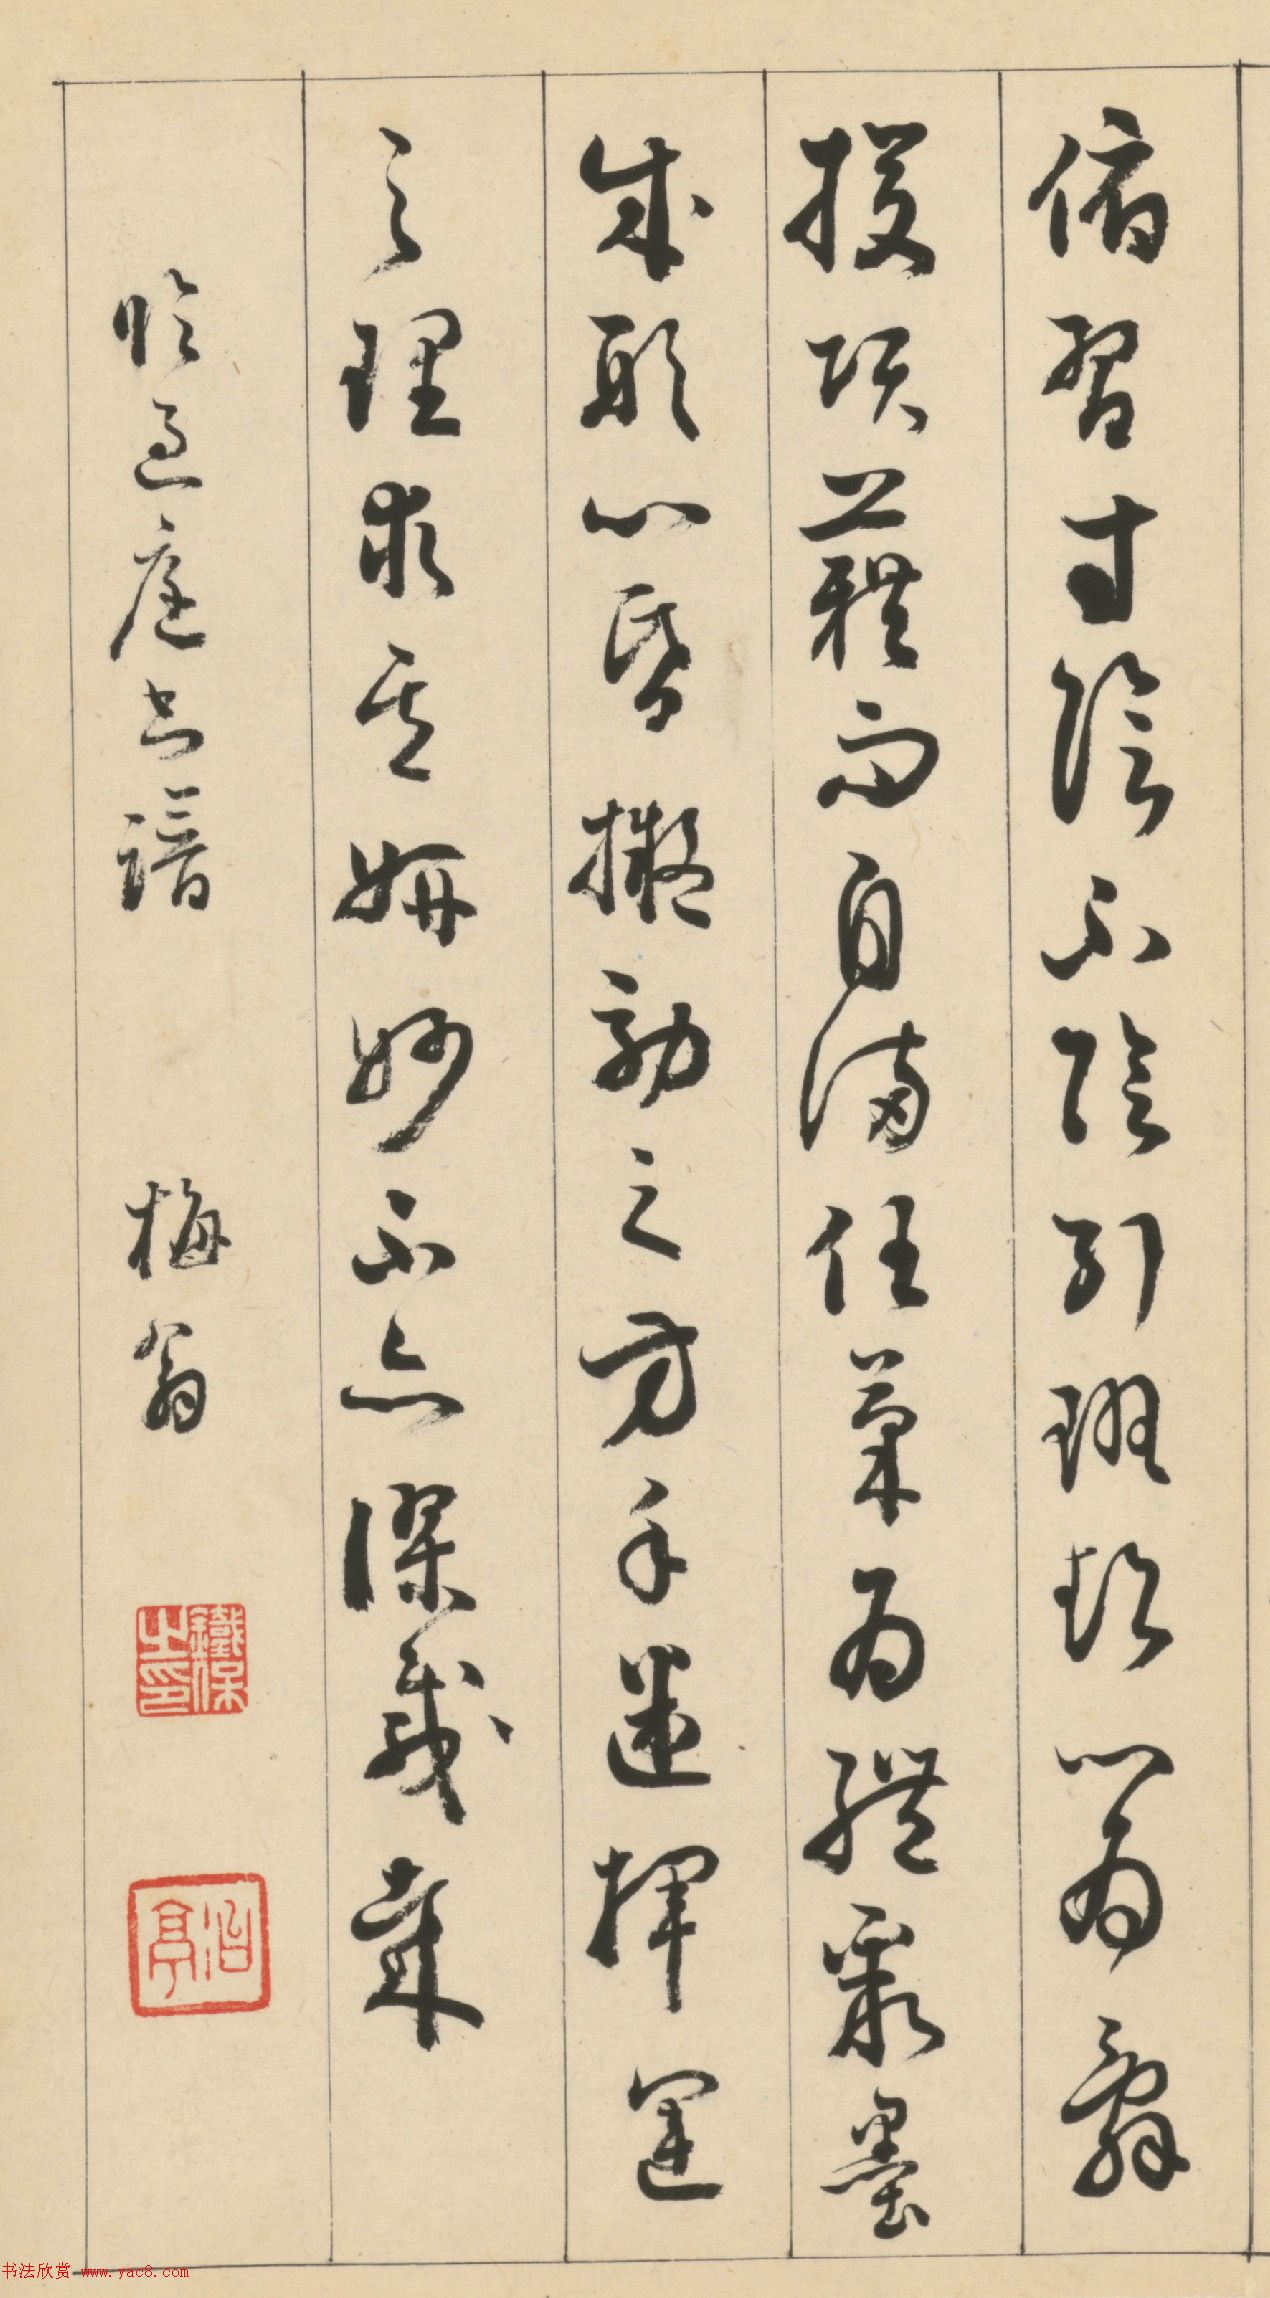 俯習寸陰不陰引班超以為辭
援項藉而自滿任筆為體聚墨
成形心昏擬効之方手迷揮運
之理求其妍妙不亦謬哉
臨過庭書譜 梅翁
鐵保之印
冶亭
书法欣赏 www.yac8.com